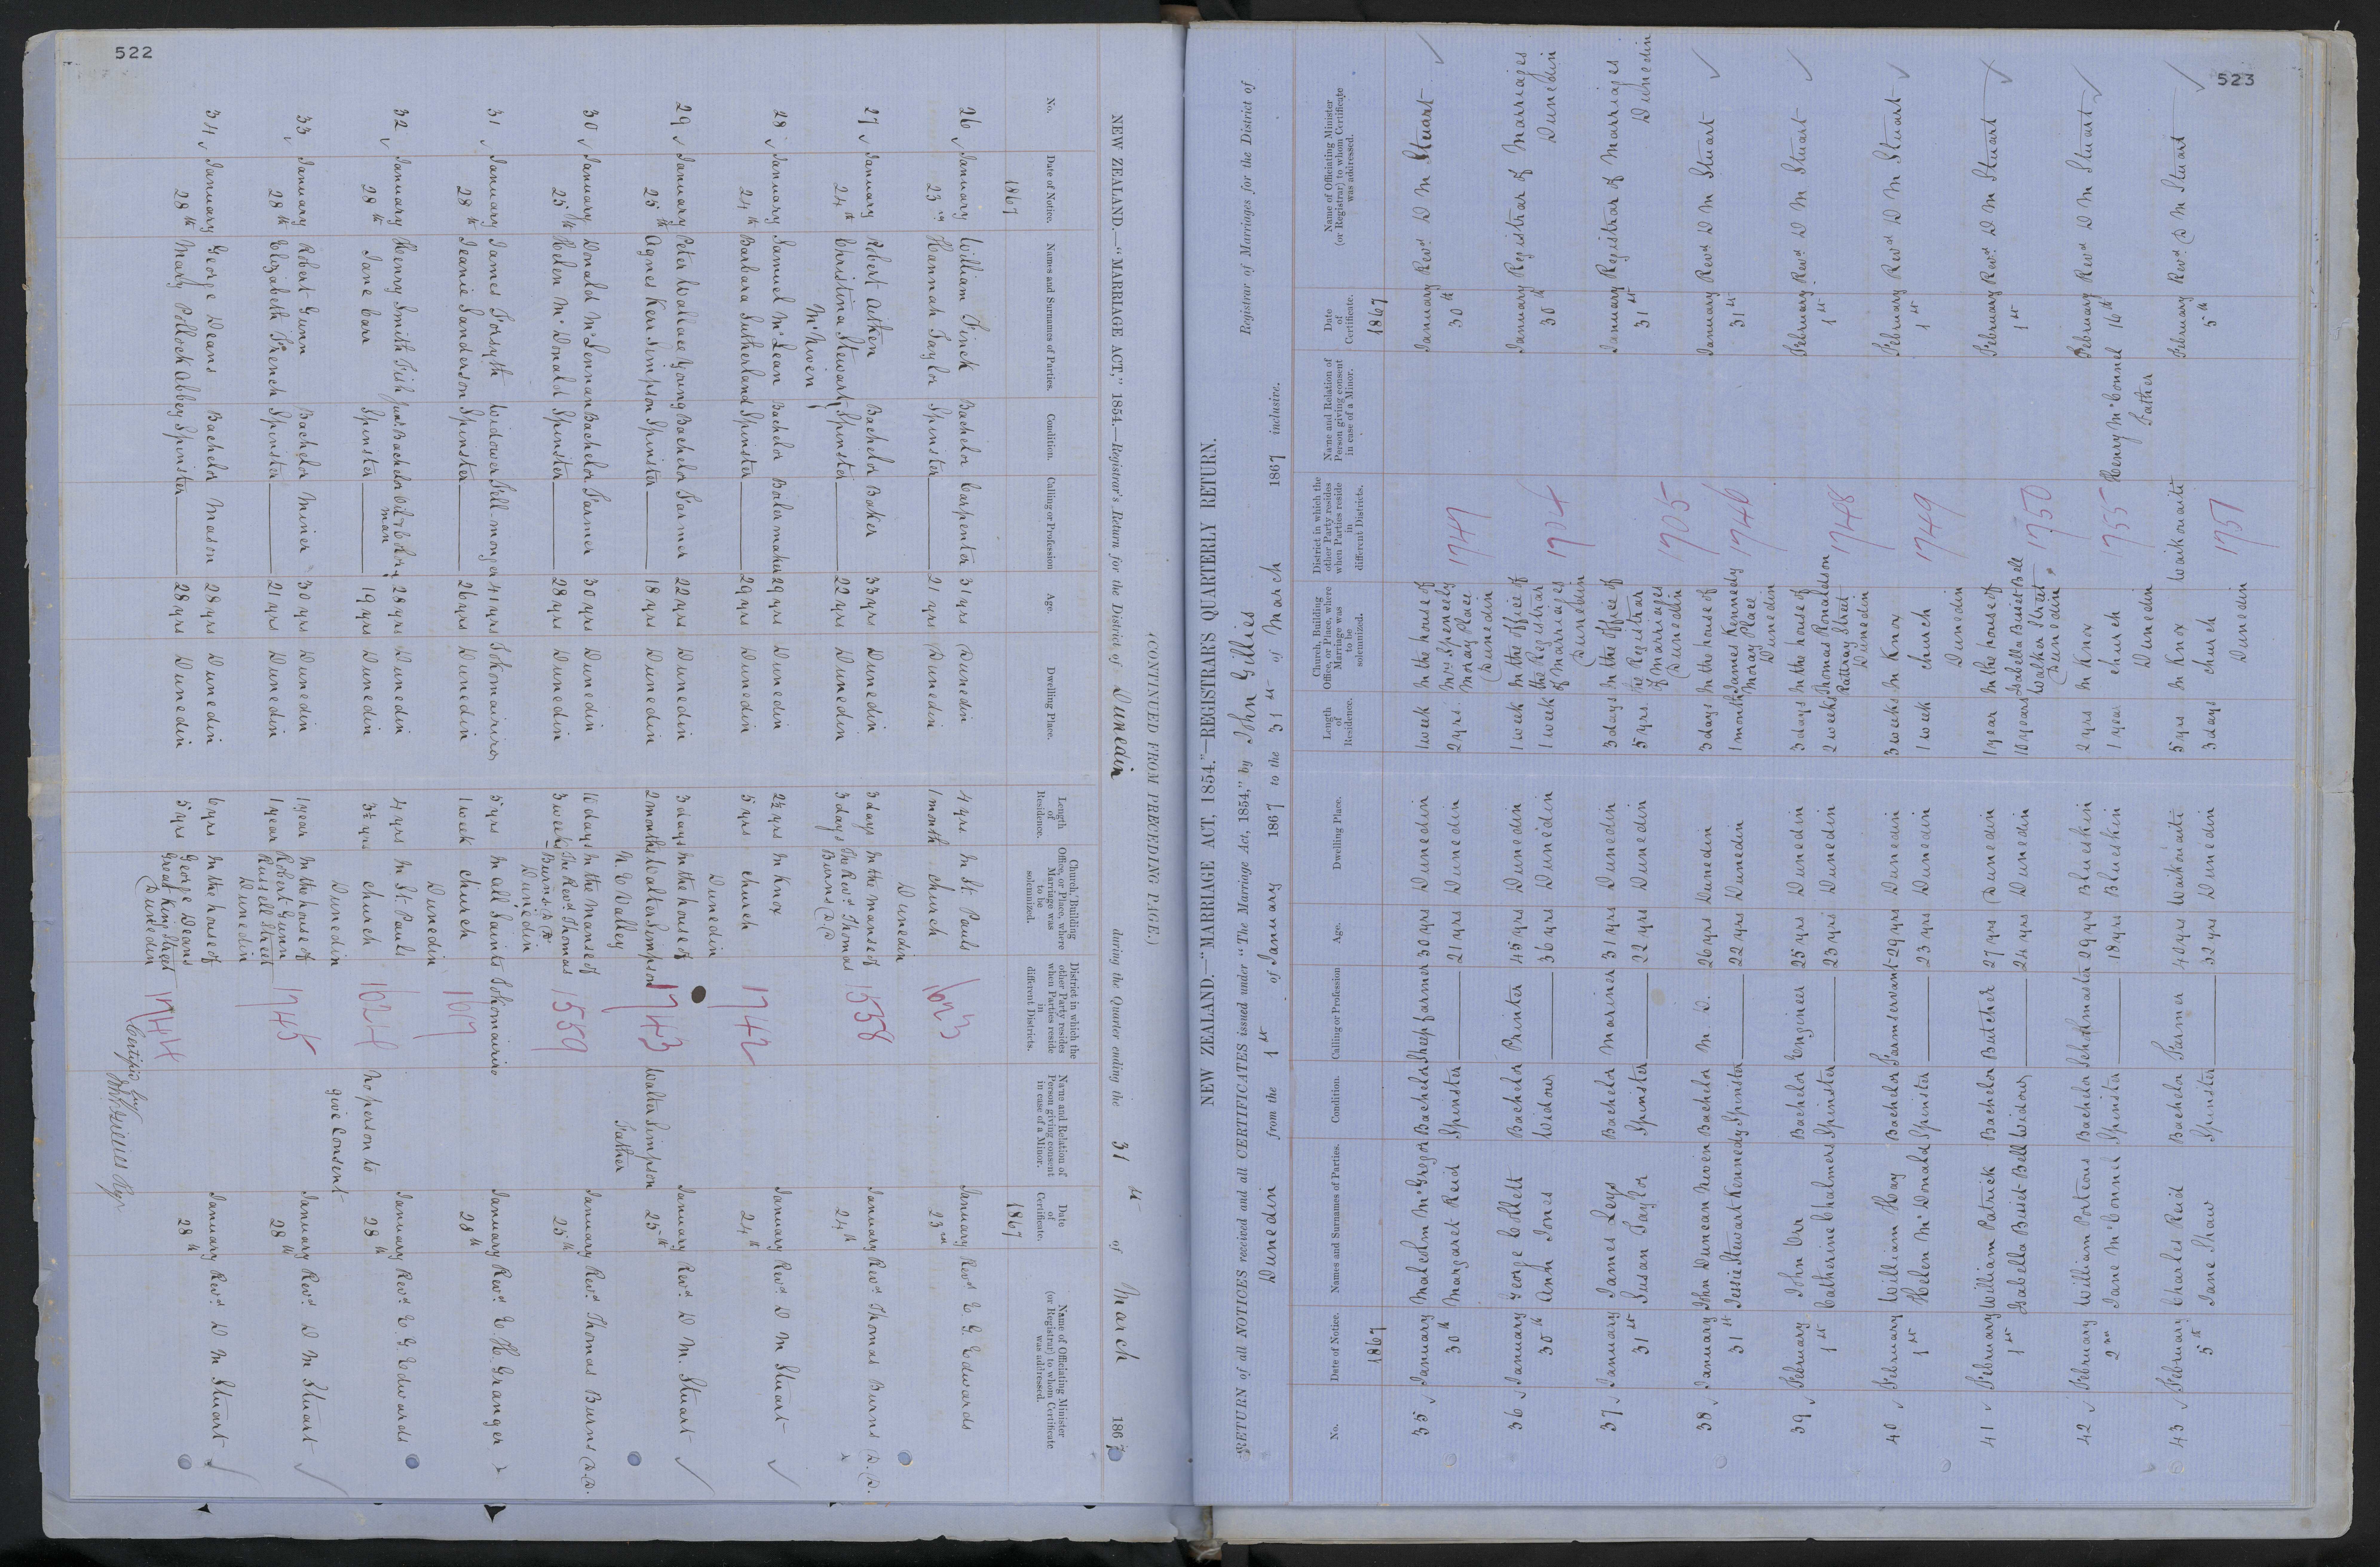 522
NEW ZEALAND.—"MARRIAGE ACT," 1854.—Registrar's Return for the District of Dunedin during the Quarter ending the 31st of March 1867
(CONTINUED FROM PRECEDING PAGE.)
No. Date of Notice. Names and Surnames of Parties. Condition. Calling or Profession Age. Dwelling Place. Length of Residence. Church, Building Office, or Place, where Marriage was to be solemnized. District in which the other Party resides when Parties reside in different Districts. Name and Relation of Person giving consent in case of a Minor. Date of Certificate. Name of Officiating Minister (or Registrar) to whom Certificate was addressed.
1867 1867
26 January William Finch Bachelor Carpenter 31 yrs Dunedin 4 yrs In St. Pauls January Revd E. G. Edwards
23rd Hannah Taylor Spinster 21 yrs Dunedin 1 month church 1623 23rd
Dunedin
27 January Robert Aitken Bachelor Baker 33 yrs Dunedin 3 days In the manse of January Revd Thomas Burns D.D.
24th Christina Stewart Spinster 22 yrs Dunedin 3 days The Revd Thomas 1558 24th
McNiven Burns D.D
28 January Samuel McLean Bachelor Boilermaker 29 yrs Dunedin 2½ yrs In Knox January Revd D M Stuart
24th Barbara Sutherland Spinster 29 yrs Dunedin 5 yrs church 1742 24th
Dunedin
29 January Peter Wallace Young Bachelor Farmer 22 yrs Dunedin 3 days In the house of January Revd D M Stuart
25th Agnes Kerr Simpson Spinster 18 yrs Dunedin 2 months Walter Simpson 1743 Walter Simpson 25th
N E Valley Father
30 January Donald McLennan Bachelor Farmer 30 yrs Dunedin 10 days In the Manse of January Revd Thomas Burns D.D.
25th Helen McDonald Spinster 28 yrs Dunedin 3 weeks The Revd Thomas 1559 25th
Burns D.D
Dunedin
31 January James Forsyth Widower Fell-monger 41 yrs Tokomairiro 5 yrs In All Saints Tokomairiro January Revd E. H. Granger
28th Jeanie Sanderson Spinster 26 yrs Dunedin 1 week church 1617 28th
Dunedin
32 January Henry Smith Fish Junr. Bachelor Oil & Color man 28 yrs Dunedin 4 yrs In St. Pauls January Revd E. G. Edwards
28th Jane Carr Spinster 19 yrs Dunedin 3½ yrs church 1624 No person to give consent 28th
Dunedin
33 January Robert Gunn Bachelor Miner 30 yrs Dunedin 1 year In the house of January Revd D M Stuart
28th Elizabeth French Spinster 21 yrs Dunedin 1 year Robert Gunn 1745 28th
Russell Street
Dunedin
34 January George Deans Bachelor Mason 28 yrs Dunedin 6 yrs In the house of January Revd D M Stuart
28th Mary Pollock Abbey Spinster 28 yrs Dunedin 5 yrs George Deans 1744 28th
Great King Street
Dunedin
Certified by
John Gillies Regr
523
NEW ZEALAND.—"MARRIAGE ACT, 1854."—REGISTRAR'S QUARTERLY RETURN.
RETURN of all NOTICES received and all CERTIFICATES issued under "The Marriage Act, 1854," by John Gillies Registrar of Marriages for the District of
Dunedin from the 1st of January 1867 to the 31st of March 1867 inclusive.
No. Date of Notice. Names and Surnames of Parties. Condition. Calling or Profession Age. Dwelling Place. Length of Residence. Church, Building Office, or Place, where Marriage was to be solemnized. District in which the other Party resides when Parties reside in different Districts. Name and Relation of Person giving consent in case of a Minor. Date of Certificate. Name of Officiating Minister (or Registrar) to whom Certificate was addressed.
1867 1867
35 January Malcolm McGregor Bachelor Sheepfarmer 30 yrs Dunedin 1 week In the house of January Revd D M Stuart
30th Margaret Reid Spinster 21 yrs Dunedin 2 yrs. Mrs Spencely 1747 30th
Moray Place
Dunedin
36 January George Collett Bachelor Printer 45 yrs Dunedin 1 week In the office of January Registrar of Marriages
30th Ann Jones Widow 36 yrs Dunedin 1 week the Registrar 1704 30th Dunedin
of Marriages
Dunedin
37 January James Leys Bachelor Mariner 31 yrs Dunedin 3 days In the office of January Registrar of Marriages
31st Susan Taylor Spinster 22 yrs Dunedin 5 yrs. the Registrar 1705 31st Dunedin
of Marriages
Dunedin
38 January John Duncan Niven Bachelor M. D. 26 yrs Dunedin 3 days In the house of January Revd D M Stuart
31st Jessie Stewart Kennedy Spinster 22 yrs Dunedin 1 month James Kennedy 1746 31st
Moray Place
Dunedin
39 February John Orr Bachelor Engineer 25 yrs Dunedin 3 days In the house of February Revd D M Stuart
1st Catherine Chalmers Spinster 23 yrs Dunedin 2 weeks Thomas Ronaldson 1748 1st
Rattray Street
Dunedin
40 February William Hay Bachelor Farmservant 29 yrs Dunedin 3 weeks In Knox February Revd D M Stuart
1st Helen McDonald Spinster 23 yrs Dunedin 1 week church 1749 1st
Dunedin
41 February William Patrick Bachelor Butcher 27 yrs Dunedin 1 year In the house of February Revd D M Stuart
1st Isabella Bisset Bell Widow 24 yrs Dunedin 10 years Isabella Bisset Bell 1750 1st
Walker Street
Dunedin
42 February William Porteous Bachelor Schoolmaster 29 yrs Blueskin 2 yrs In Knox Henry McConnel February Revd D M Stuart
2nd Jane McConnel Spinster 18 yrs Blueskin 1 year church 1755 Father 16th
Dunedin
43 February Charles Reid Bachelor Farmer 40 yrs Waikouaiti 5 yrs In Knox Waikouaiti February Revd D M Stuart
5th Jane Shaw Spinster 32 yrs Dunedin 3 days church 1751 5th
Dunedin